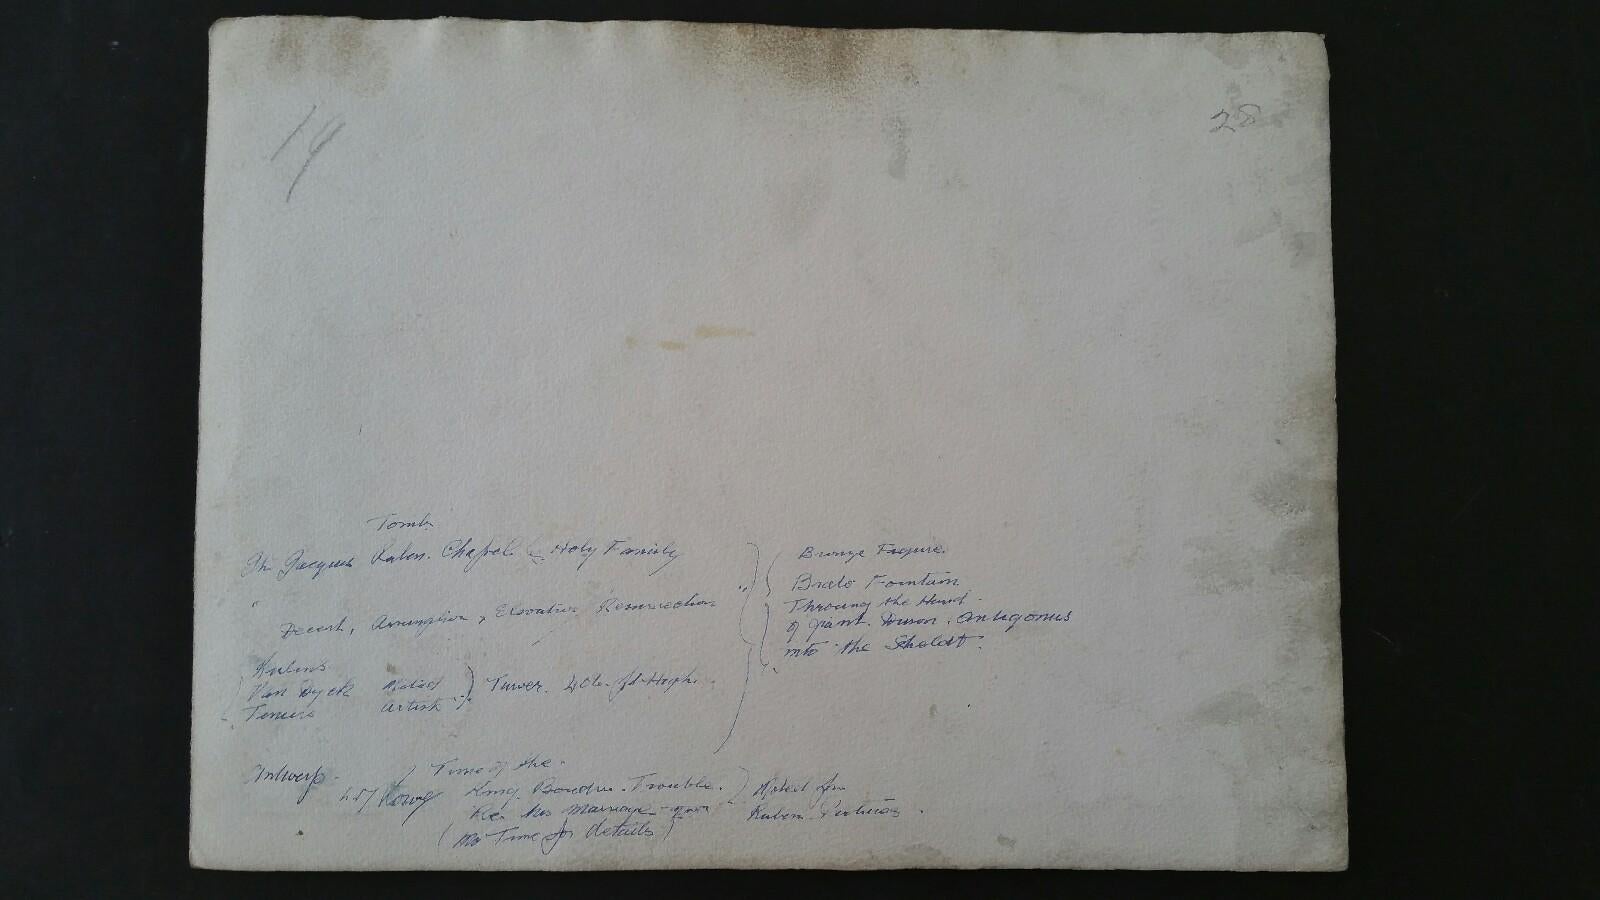 19
28
Tomb
St. Jacques Ruben. Chapel. Holy Family
Decent, Assumption, Elevation Resurrection
Rubens
Van Dyck Noted
Teniers Artists
Tower. 406. ft High.
Bronze Figure.
Brabo Fountain
Throwing the Hand
of giant. Antigonus
into the Scheldt.
Antwerp.
Time of the
King. Trouble.
Re. his marriage
(No Time for details)
Noted for
Ruben. Pictures.